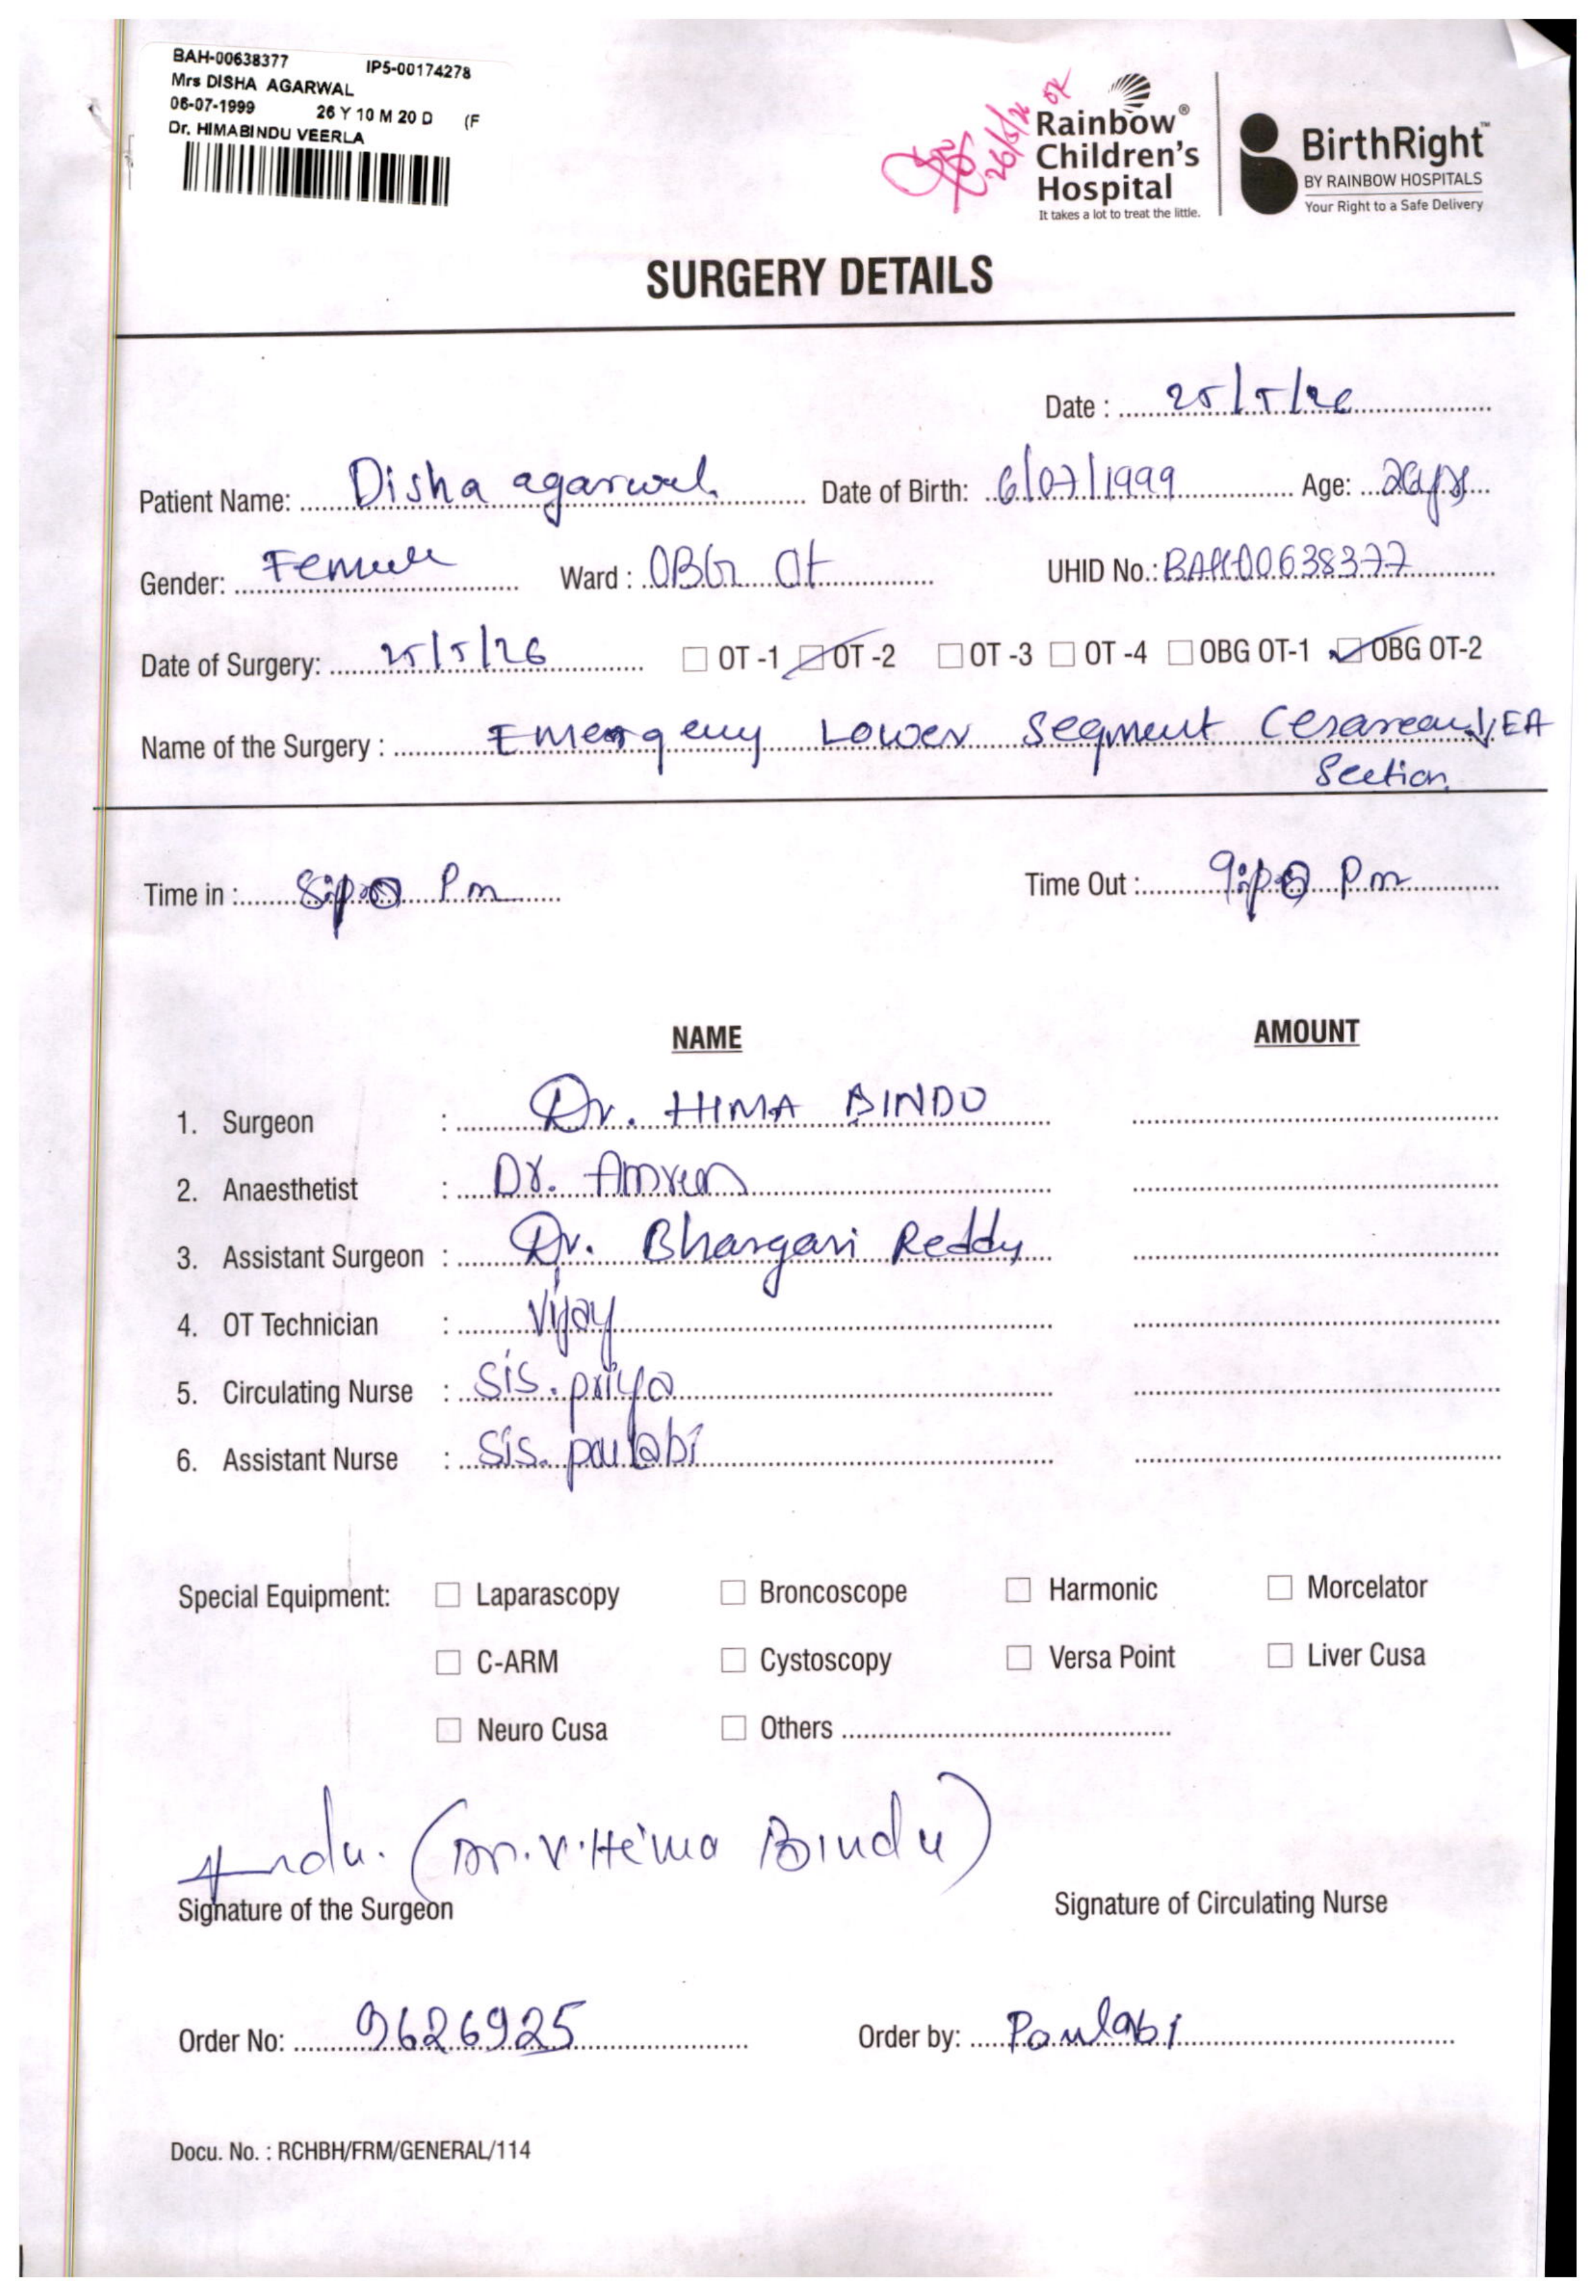 BAH-00638377 IP5-00174278
Mrs DISHA AGARWAL
06-07-1999 26 Y 10 M 20 D (F
Dr. HIMABINDU VEERLA
26/5/26
Rainbow®
Children's
Hospital
It takes a lot to treat the little.
BirthRight™
BY RAINBOW HOSPITALS
Your Right to a Safe Delivery
SURGERY DETAILS
Date : 25/5/26
Patient Name: Disha agarwal Date of Birth: 6/07/1999 Age: 26yrs
Gender: Female Ward : OBG Ot UHID No.: BAH00638377
Date of Surgery: 25/5/26 OT -1 OT -2 OT -3 OT -4 OBG OT-1 OBG OT-2
Name of the Surgery : Emergency Lower Segment Cesarean EA
Section
Time in : Pm Time Out : Pm
NAME AMOUNT
1. Surgeon : Dr. HIMA BINDU
2. Anaesthetist : Dr.
3. Assistant Surgeon : Dr. Bhargavi Reddy
4. OT Technician : Vijay
5. Circulating Nurse : Sis. priya
6. Assistant Nurse : Sis. paulabi
Special Equipment: Laparascopy Broncoscope Harmonic Morcelator
C-ARM Cystoscopy Versa Point Liver Cusa
Neuro Cusa Others
(Dr. V. Hima Bindu)
Signature of the Surgeon Signature of Circulating Nurse
Order No: 9626925 Order by: Paulabi
Docu. No. : RCHBH/FRM/GENERAL/114